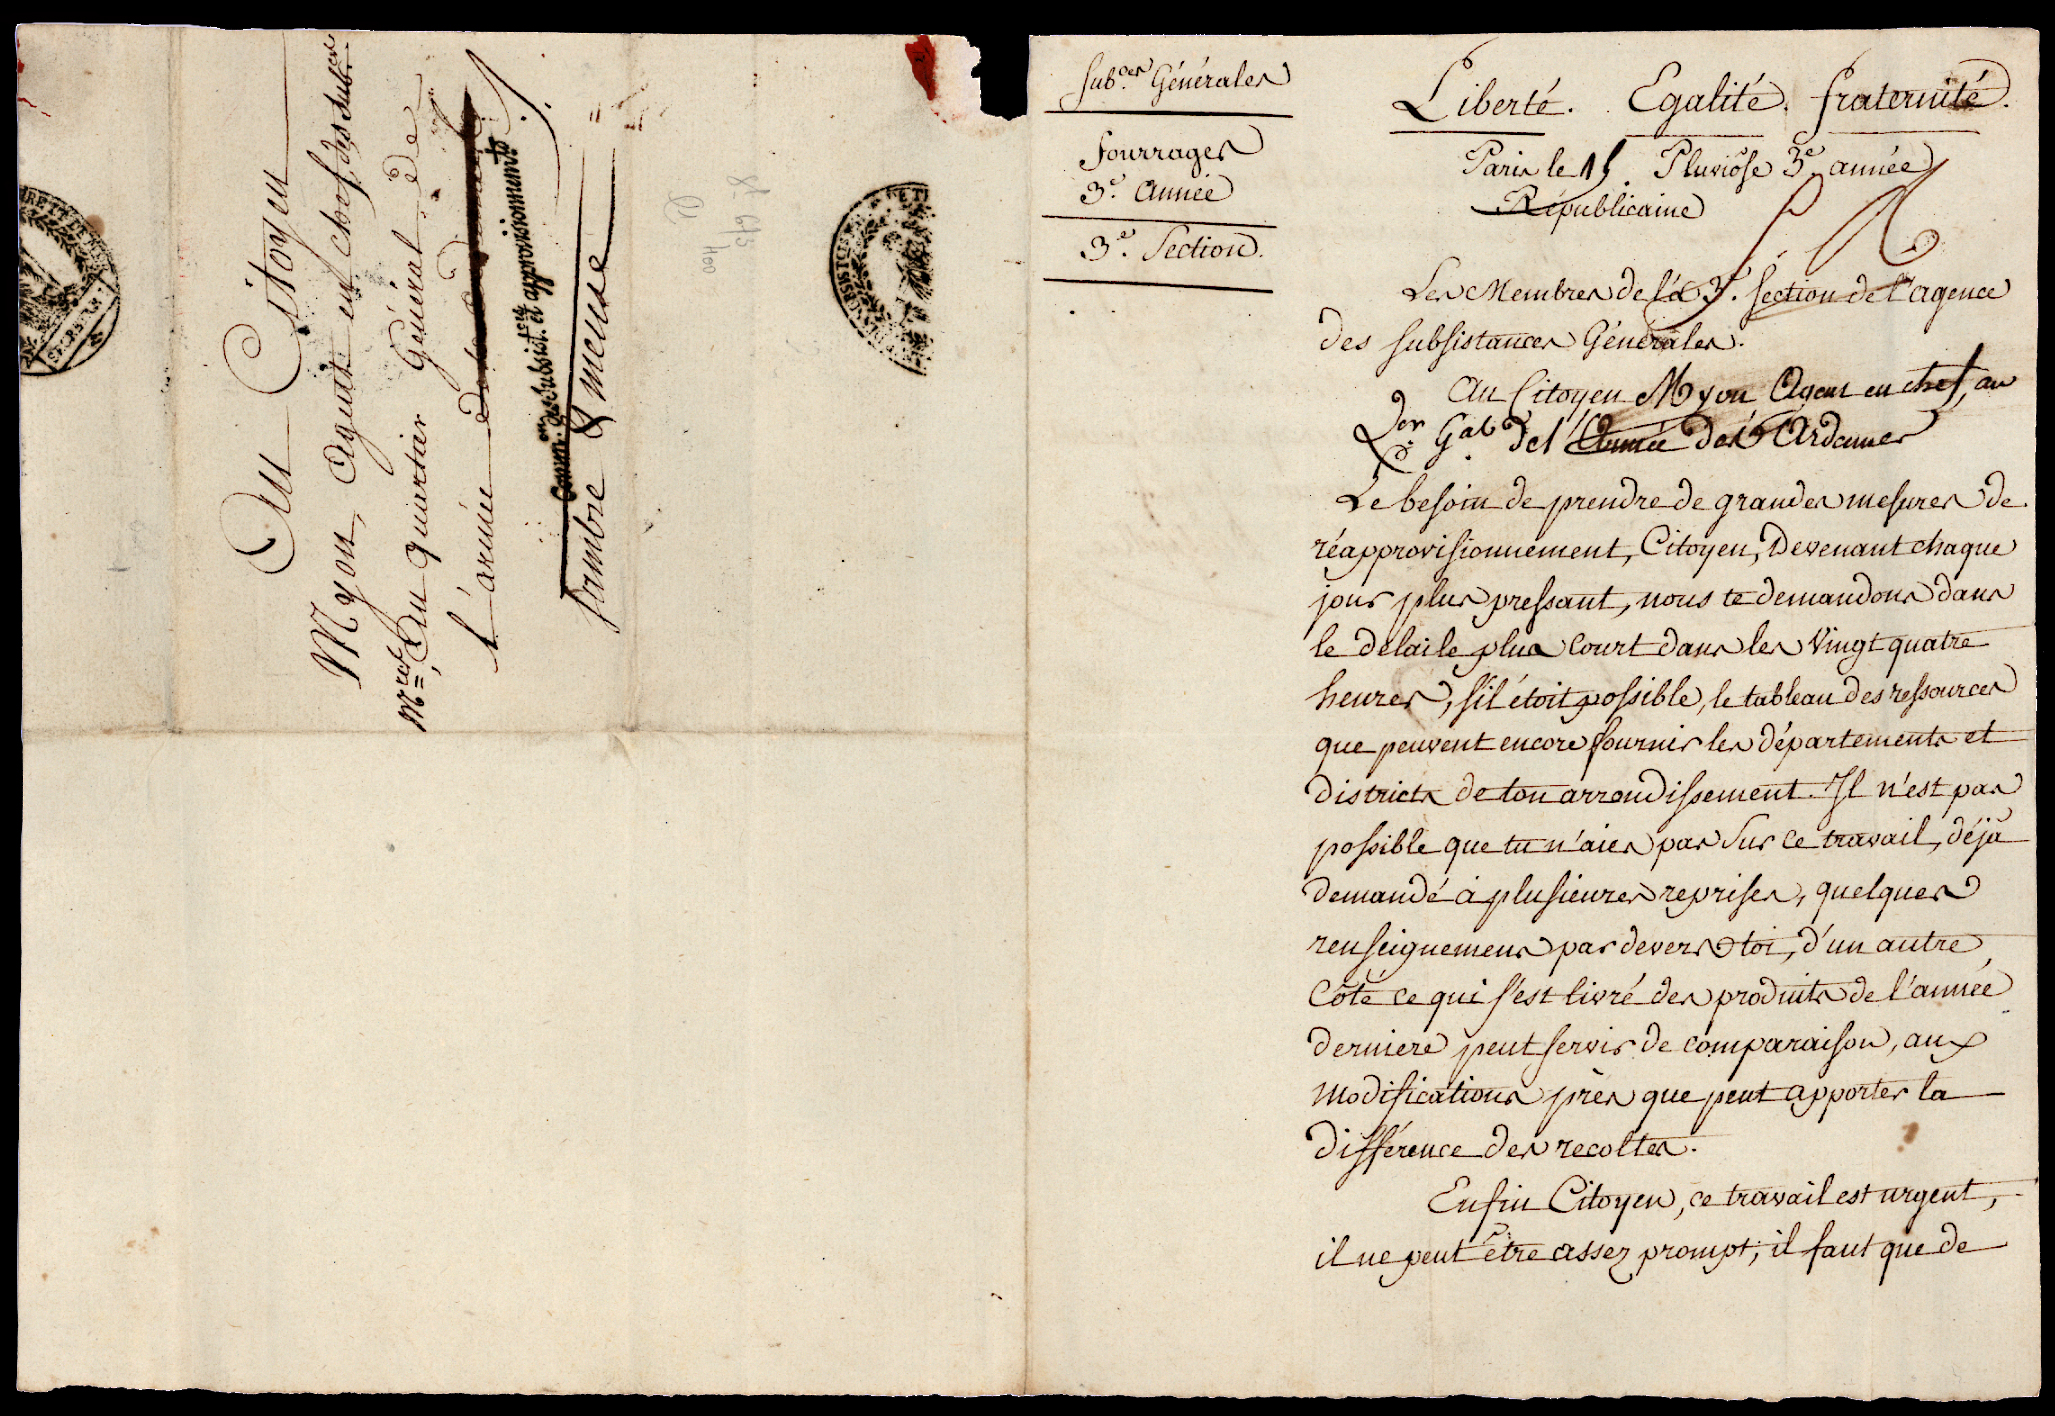 Au Citoyen
Myon, Agent en chef des Subces
Mres, Au quartier Général de
l'armée
Common. des Subsistces et approvisionnements
Sambre & meuse
Subces Générales
fourrages
3e. année
3e. Section.
Liberté. Egalité. fraternité.
Paris le 15 Pluviôse 3e. année
Républicaine
Les Membres de la 3e. section de l'agence
des subsistances Générales.
Au Citoyen Myon Agent en chef, au
Qer Gal de l'Armée des Ardennes
Le besoin de prendre de grandes mesures de
réapprovisionnement, Citoyen, Devenant chaque
jour plus pressant, nous te demandons dans
le delai le plus court dans les Vingt quatre
heures, s'il étoit possible, le tableau des ressources
que peuvent encore fournir les départements et
districts de ton arrondissement. Il n'est pas
possible que tu n'aies pas sur ce travail, déjà
demandé à plusieures reprises, quelques
renseignemens par devers toi, d'un autre
Côté ce qui s'est livré des produits de l'année
derniere peut servir de comparaison, aux
modifications près que peut apporter la
différence des recoltes.
Enfin Citoyen, ce travail est urgent,
il ne peut être assez prompt; il faut que de